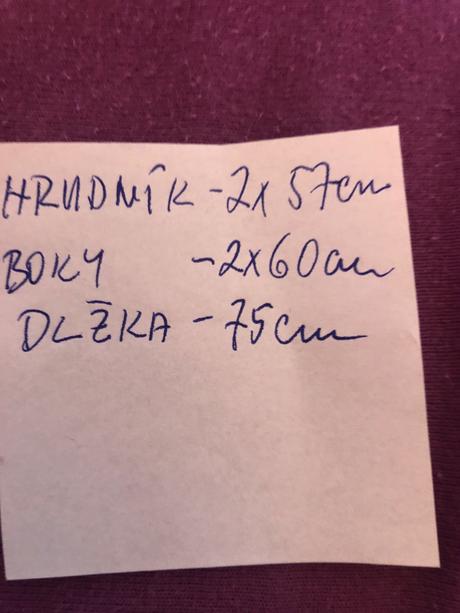 HRUDNÍK - 2x 57cm
BOKY - 2x60cm
DLŽKA - 75cm